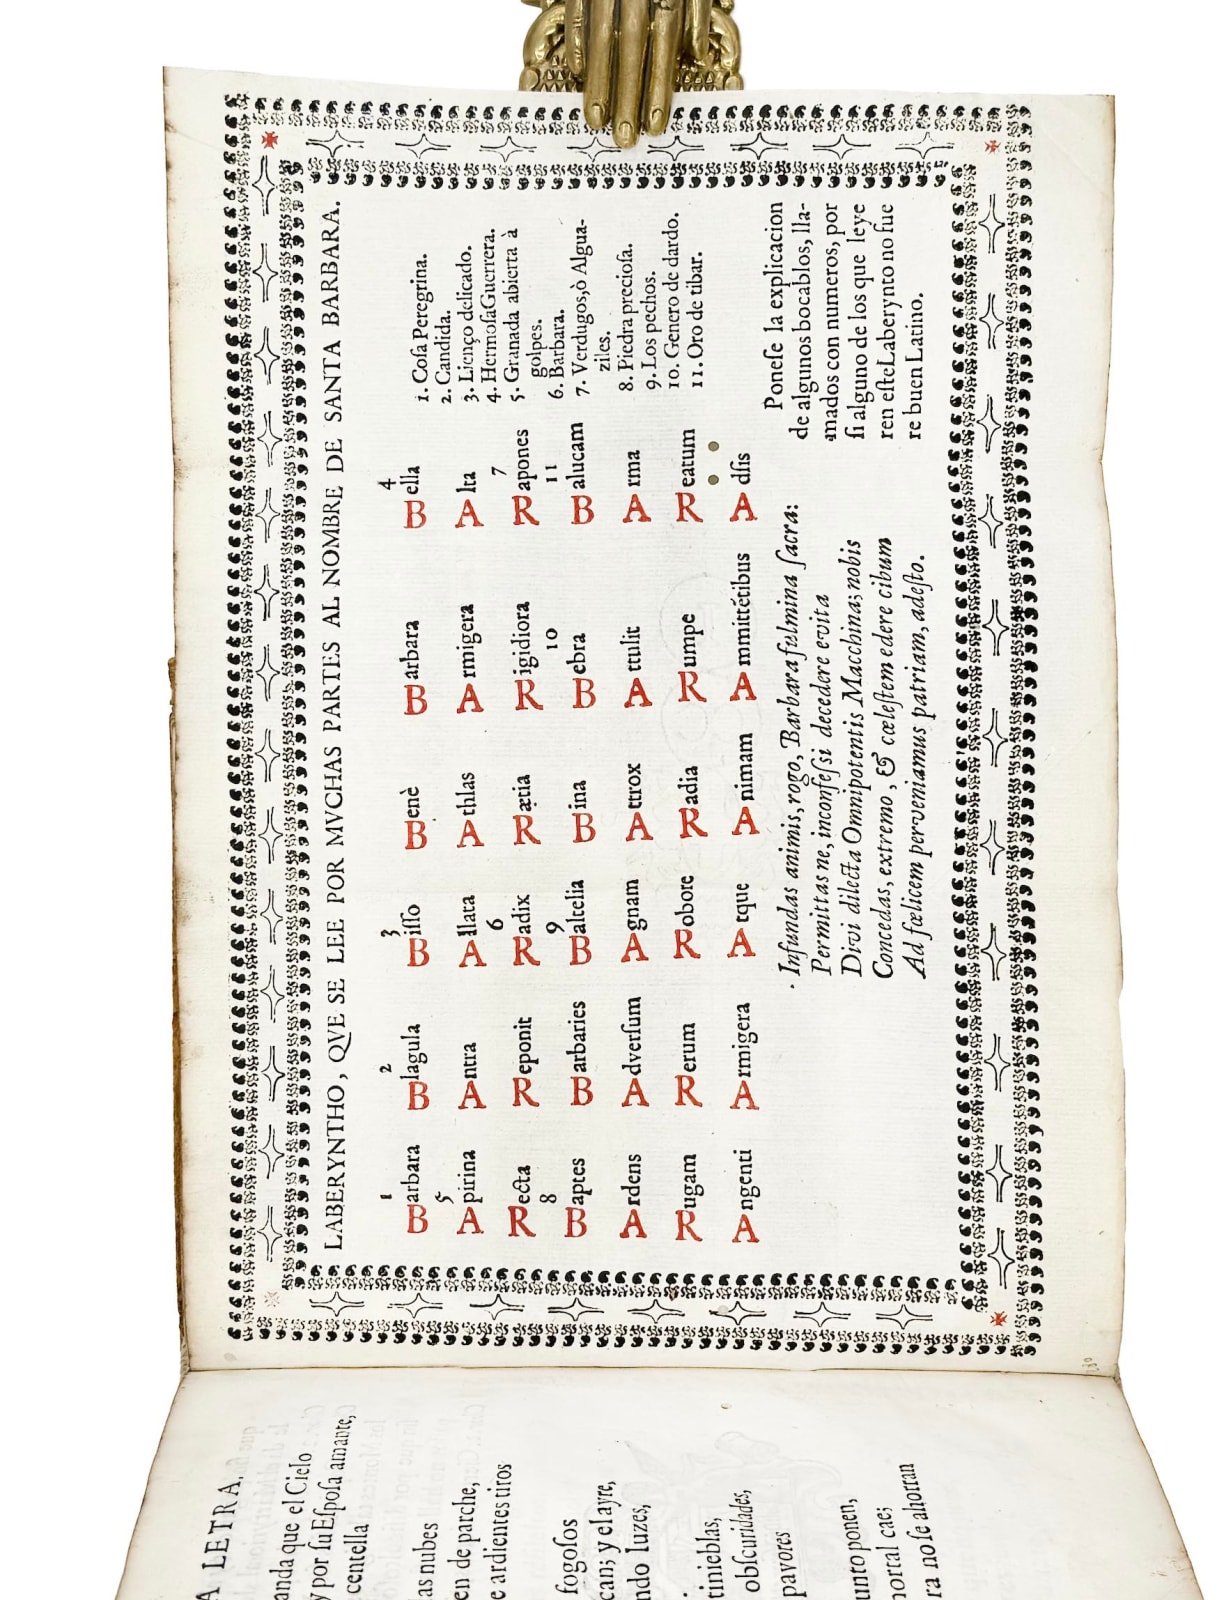 LABERYNTHO, QVE SE LEE POR MVCHAS PARTES AL NOMBRE DE SANTA BARBARA.
1 2 3 4
Barbara Blagula Bisso Benè Barbara Bella
5
Apirina Antra Allata Athlas Armigera Alta
6 7
Recta Reponit Radix Rætia Rigidiora Rapones
8 9 10 11
Baptes Barbaries Baltelia Bina Bebra Balucam
Ardens Adversum Agnam Attrox Attulit Arma
Rugam Rerum Robore Radia Rumpe Reatum
Angenti Armigera Atque Animam Ammittétibus Adsis
1. Cosa Peregrina.
2. Candida.
3. Lienço delicado.
4. Hermosa Guerrera.
5. Granada abierta à
golpes.
6. Barbara.
7. Verdugos, ò Algua-
ziles.
8. Piedra preciosa.
9. Los pechos.
10. Genero de dardo.
11. Oro de tibar.
Infundas animis, rogo, Barbara fulmina sacra:
Permittas ne, inconfessi decedere evita
Divi dilecta Omnipotentis Macchina; nobis
Concedas, extremo, & cælestem edere cibum
Ad fœlicem perveniamus patriam, adesto.
Ponese la explicacion
de algunos bocablos, lla-
mados con numeros, por
si alguno de los que leye
ren este Laberynto no fue
re buen Latino.
A LETRA.
anda que el Cielo
y por su Esposa amante,
centella
las nubes
en de parche,
e ardientes tiros
fogosos
can; y el ayre,
ndo luzes,
tinieblas,
obscuridades,
pavores
unto ponen,
mortal cae;
ra no se ahorran